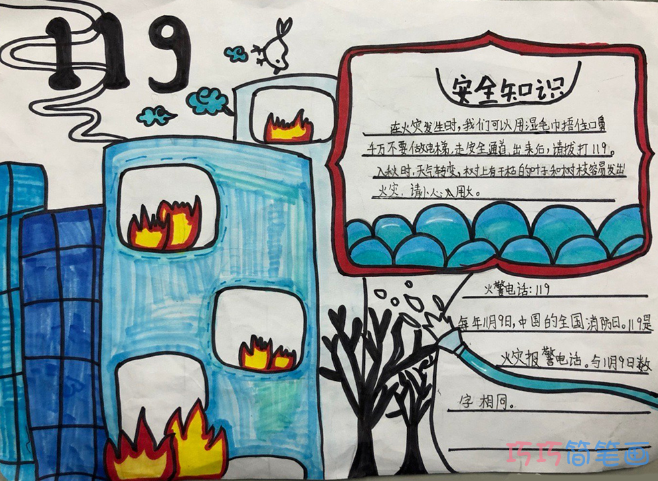 119
安全知识
在火灾发生时,我们可以用湿毛巾捂住口鼻
千万不要做电梯,走安全通道,出来后,请拨打119。
入秋时,天气转变,树上有干枯的叶子和树枝容易发出
火灾,请小心用火。
火警电话:119
每年11月9日,中国的全国消防日。119是
火灾报警电话。与11月9日数
字相同。
巧巧简笔画